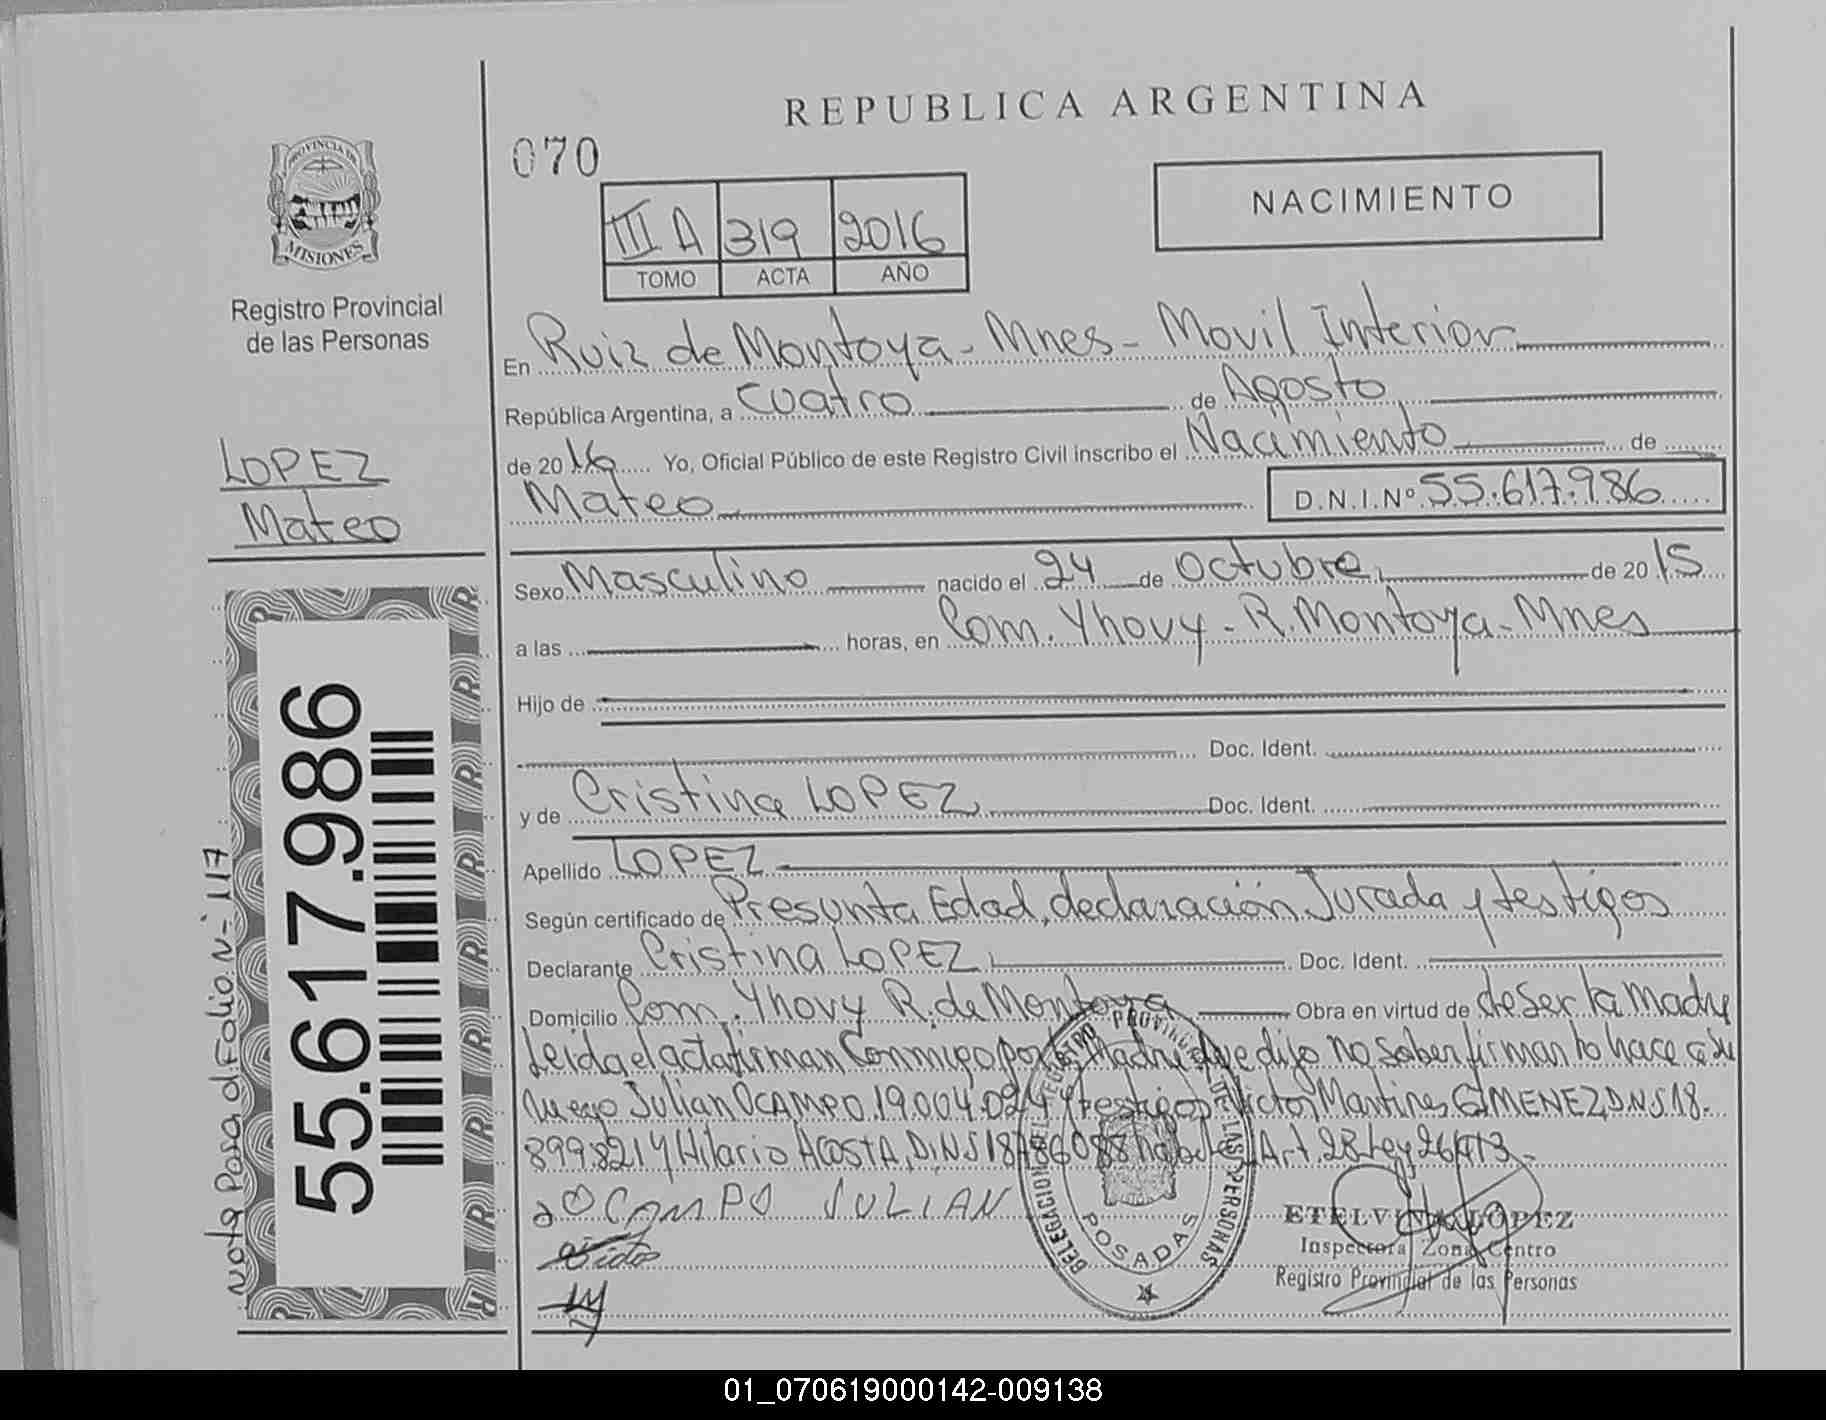 REPUBLICA ARGENTINA
070
NACIMIENTO
III A 319 2016
TOMO ACTA AÑO
PROVINCIA DE
MISIONES
Registro Provincial
de las Personas
LOPEZ
Mateo
En Ruiz de Montoya - Mnes - Movil Interior
República Argentina, a cuatro de Agosto
de 2016 Yo, Oficial Público de este Registro Civil inscribo el Nacimiento de
Mateo D.N.I.Nº 55.617.986
Sexo Masculino nacido el 24 de Octubre de 2015
a las horas, en Com. Yhovy - R. Montoya - Mnes
Hijo de
Doc. Ident.
y de Cristina LOPEZ Doc. Ident.
Apellido LOPEZ
Según certificado de Presunta Edad, declaración Jurada y testigos
Declarante Cristina LOPEZ Doc. Ident.
Domicilio Com. Yhovy R. de Montoya Obra en virtud de de Ser la Madre
Leida el acta firman Conmigo por la Madre que dijo no saber firman lo hace a su
ruego Julian OCAMPO 19.004.024 y testigos Victor Martines GIMENEZ D.N.I 18.
899.821 y Hilario ACOSTA, D.N.I 18786088 Art. 28 Ley 26413.-
OCAMPO JULIAN
ETELVINA LOPEZ
Inspectora Zona Centro
Registro Provincial de las Personas
DELEGACION DEL REGISTRO PROVINCIAL DE LAS PERSONAS
POSADAS
55.617.986
Nota Pasa al Folio Nº 117
01_070619000142-009138